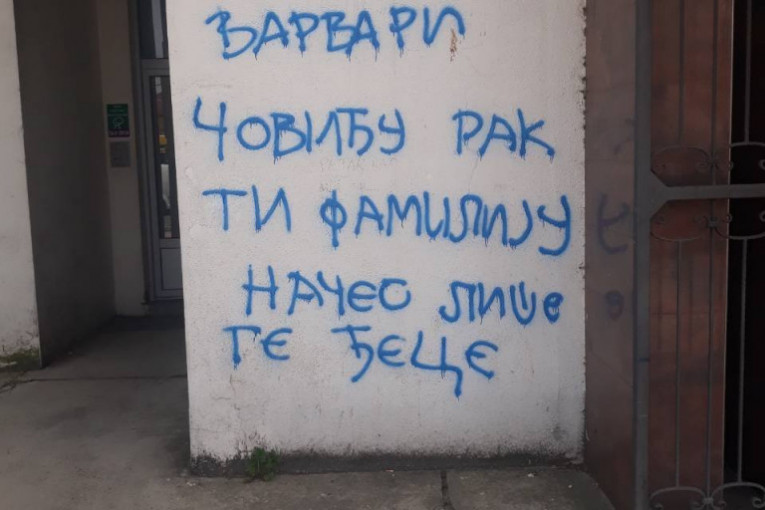 ВАРВАРИ
ЧОВИЋУ РАК
ТИ ФАМИЛИЈУ
НАЧЕО ЛИШЕ
ТЕ ЂЕЦЕ